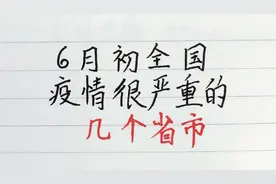 6月初全国
疫情很严重的
几个省市